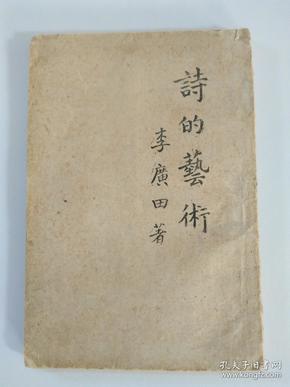 詩的藝術
李廣田著
孔夫子旧书网